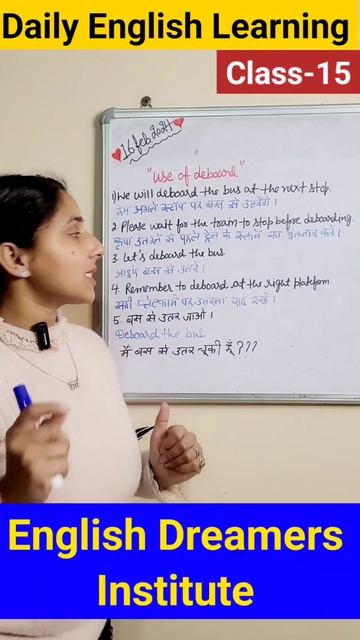 Daily English Learning
Class-15
16 feb 2024
"use of deboard"
1) we will deboard the bus at the next stop.
हम अगले स्टॉप पर बस से उतरेंगे।
2. Please wait for the train to stop before deboarding.
कृपया उतरने से पहले ट्रेन के रुकने का इंतजार करें।
3. Let's deboard the bus
आइए बस से उतरें।
4. Remember to deboard at the right platform.
सही प्लेटफार्म पर उतरना याद रखें।
5. बस से उतर जाओ।
Deboard the bus.
मैं बस से उतर चुकी हूँ???
English Dreamers
Institute